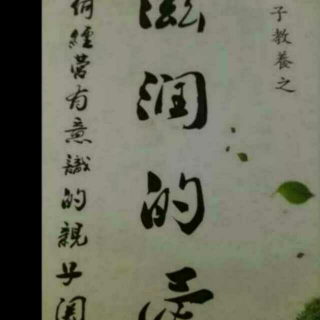 子教養之
滋润的
何經營有意識的親子